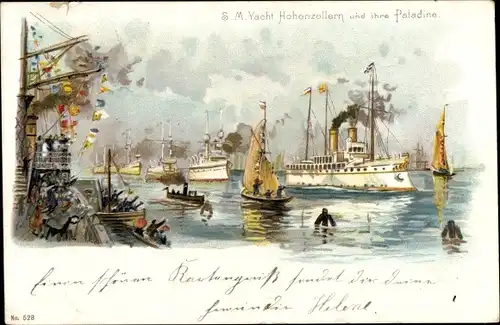 S. M. Yacht Hohenzollern und ihre Paladine.
Einen schönen Kartengruß sendet dir deine
Helene.
No. 528